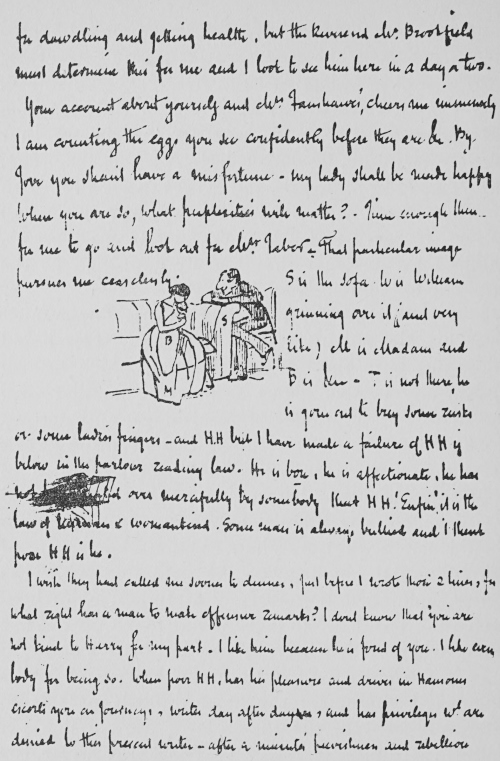 for dawdling and getting health, but the Reverend Mr. Brookfield
must determine this for me and I look to see him here in a day or two.
Your account about yourself and Mrs. Fanshawe's, cheers me immensely
I am counting the eggs you see confidently before they are &c. By
Jove you shan't have a misfortune - my lady shall be made happy
When you are so, what perplexities will matter? - Time enough then
for me to go and look out for Mrs. Tabor - That particular image
pursues me ceaselessly.
S is the sofa. W is William
grinning over it (and very
like) M is Madam and
B is - T is not there, he
is gone out to buy some rusks
or some ladies fingers - and HH but I have made a failure of HH is
below in the parlour reading law. He is , he is affectionate, he has
not over mercifully by somebody that HH. Enfin, it is the
law of & womankind. Some man is always bullied and I think
poor HH is he.
I wish they had called me sooner to dinner, just before I wrote those 2 lines, for
what right has a man to make offensive remarks? I dont know that you are
not kind to Harry for my part. I like him because he is fond of you. I like every
body for being so. When poor HH, has his pleasure and drives in Hansoms
escorts you on journeys, writes day after day, and has privileges wh. are
denied to this present writer - after a minutes peevishness and rebellion